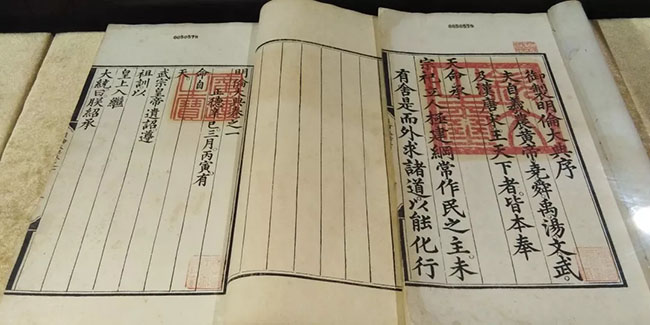 御製明倫大典序
夫自羲農黃帝堯舜禹湯文武。
及漢唐宋主天下者。皆本奉
天命承
宗祀立人極建綱常作民之主。未
有舍是而外求諸道以能化行
明倫大典卷之一
正德辛巳三月丙寅。有
命自
天
武宗皇帝遺詔遵
祖訓以
皇上入繼
大統曰朕紹承